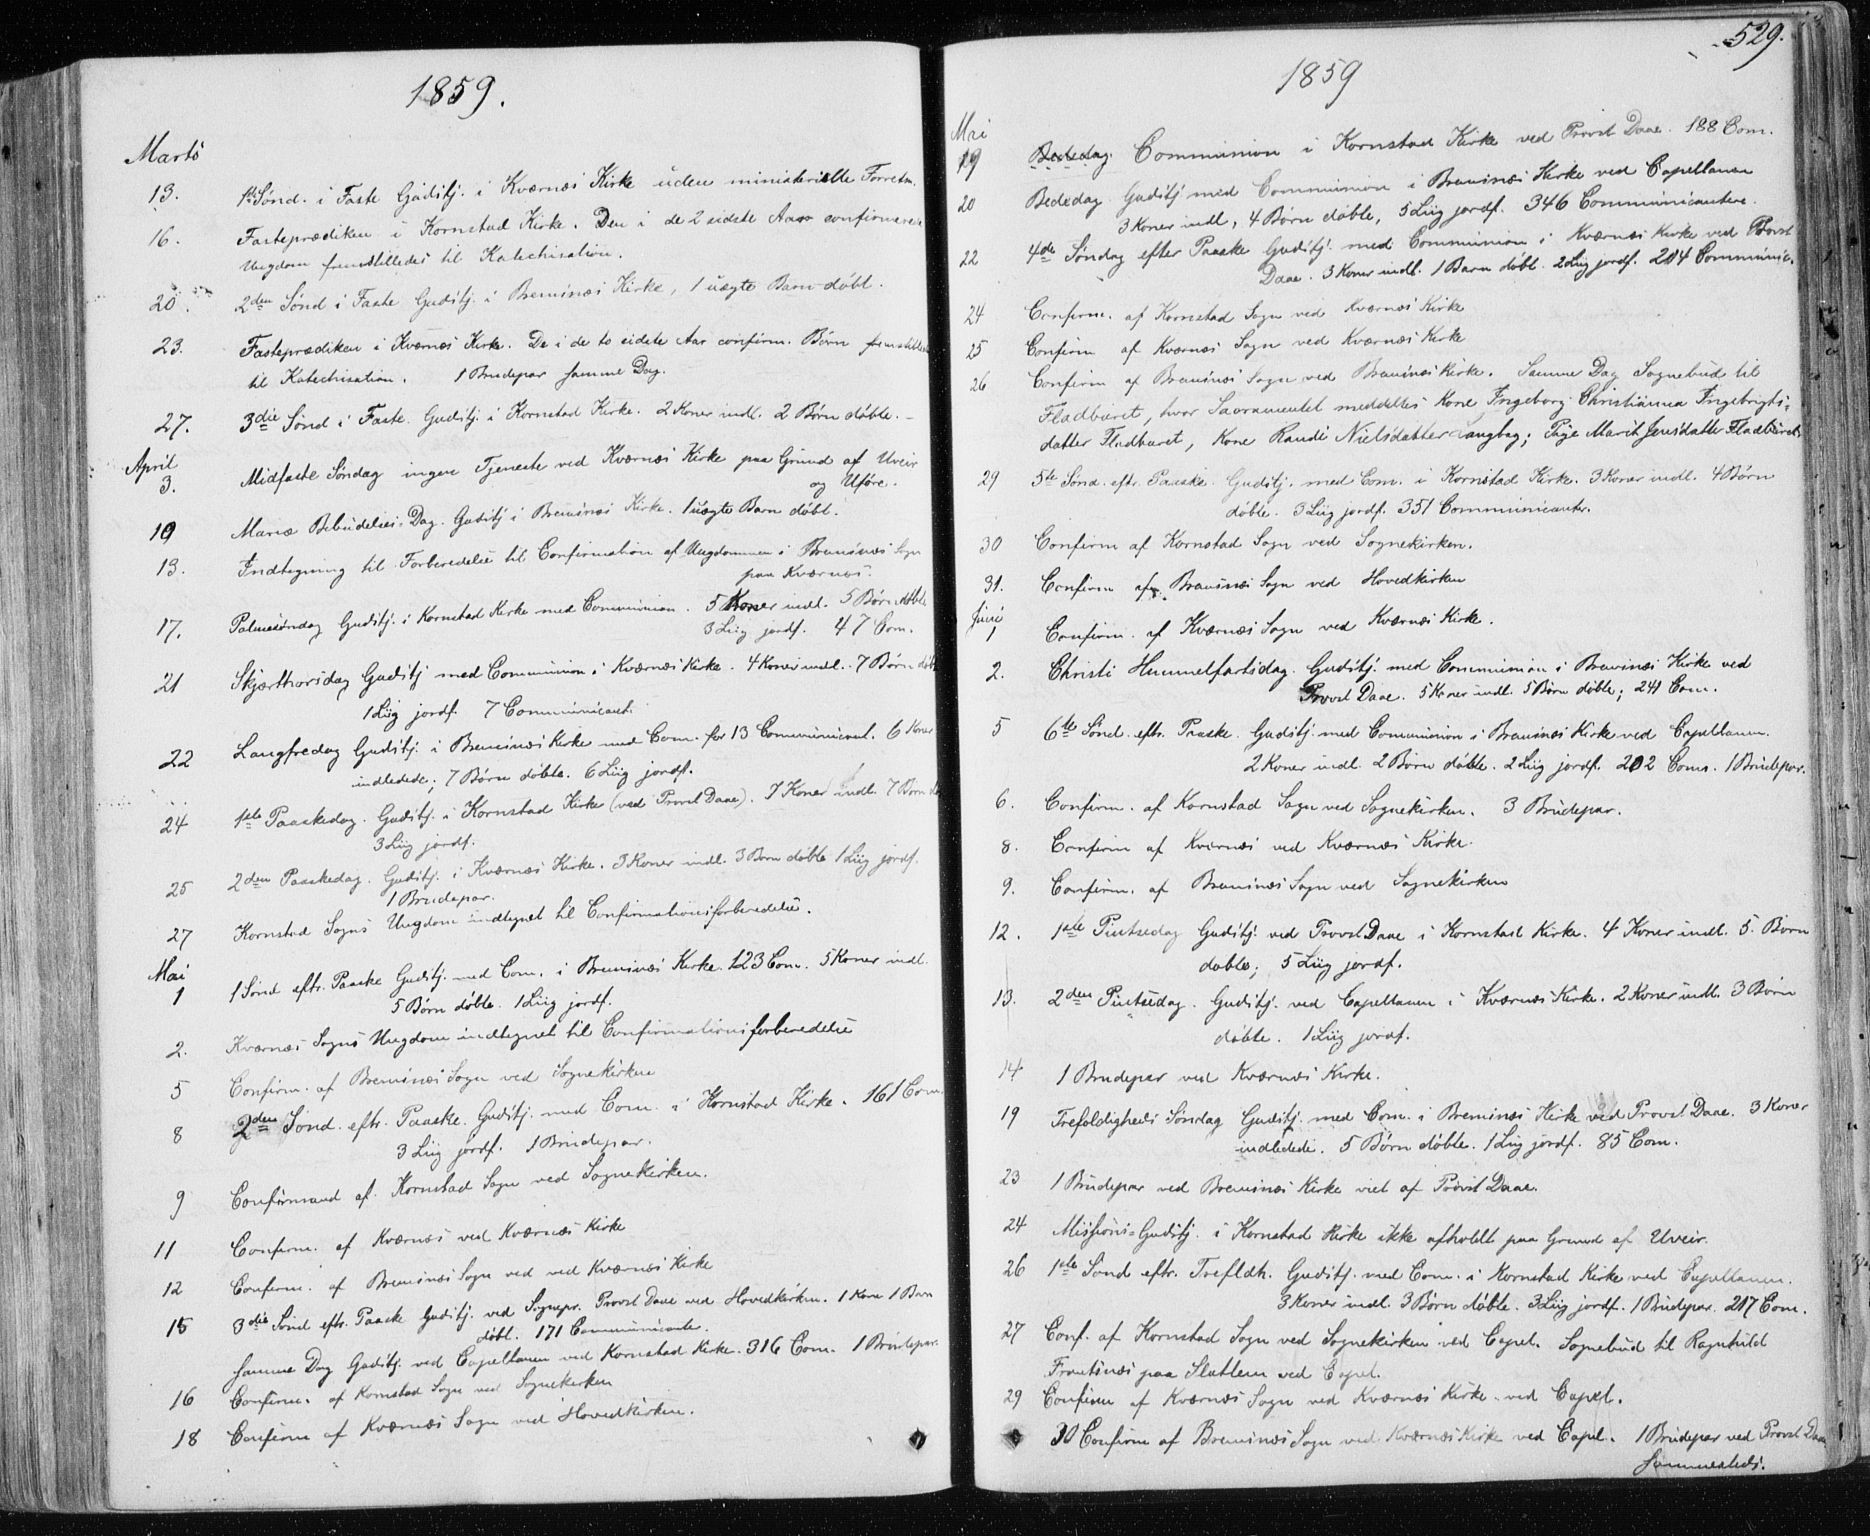 1859.
Marts
13. 1ste Sønd. i Faste Gudstj. i Kværnæs Kirke uden ministerielle Forretn.
16. Fasteprædiken i Kornstad Kirke. Den i de 2 sidste Aar confirmerede
Ungdom fremstilledes til Katechisation.
20. 2den Sønd i Faste Gudstj. i Bremsnæs Kirke, 1 uægte Barn døbt.
23. Fasteprædiken i Kværnæs Kirke. De i de to sidste Aar confirm. Børn fremstilledes
til Katechisation. 1 Brudepar samme Dag.
27. 3die Sønd i Faste Gudstj. i Kornstad Kirke. 2 Koner indl. 2 Børn døbte.
April
3. Midfaste Søndag ingen Tjeneste ved Kværnæs Kirke paa Grund af Uveir
og Uføre.
10 Mariæ Bebudelses-Dag. Gudstj i Bremsnæs Kirke. 1 uægte Barn døbt.
13. Indtegning til Forberedelse til Confirmation af Ungdommen i Bremsnæs Sogn
paa Kværnæs.
17. Palmesøndag Gudstj. i Kornstad Kirke med Communion. 5 Koner indl. 5 Børn døbte
3 Liig jordf. 47 Com.
21 Skjærthorsdag Gudstj med Communion i Kværnæs Kirke. 4 Koner indl. 7 Børn døbte
1 Liig jordf. 7 Communicant.
22 Langfredag Gudstj. i Bremsnæs Kirke med Com. for 13 Communicant. 6 Koner
indledede; 7 Børn døbte. 6 Liig jordf.
24 1ste Paaskedag. Gudstj. i Kornstad Kirke (ved Provst Daae). 7 Koner indl. 7 Børn
3 Liig jordf.
25 2den Paaskedag. Gudstj. i Kværnæs Kirke. 3 Koner indl. 3 Børn døbte 1 Liig jordf.
1 Brudepar.
27 Kornstad Sogns Ungdom indtegnet til Confirmationsforberedelse.
Mai
1 1 Sønd eftr. Paaske Gudstj. med Com. i Bremsnæs Kirke. 123 Com. 5 Koner indl.
5 Børn døbte. 1 Liig jordf.
2. Kværnæs Sogns Ungdom indtegnet til Confirmationsforberedelse
5 Confirm. af Bremsnæs Sogn ved Sognekirken
8 2den Sønd. eftr. Paaske. Gudstj. med Com. i Kornstad Kirke. 161 Com.
3 Liig jordf. 1 Brudepar.
9 Confirmand af Kornstad Sogn ved Sognekirken.
11 Confirm. af Kværnæs ved Kværnæs Kirke
12 Confirm. af Bremsnæs Sogn ved ved Kværnæs Kirke
15 3die Sønd eftr. Paaske Gudstj. ved Sognepr. Provst Daae ved Hovedkirken. 1 Kone 1 Barn
døbt. 171 Communicanter.
Samme Dag Gudstj. ved Capellanen ved Kornstad Kirke. 316 Com. 1 Brudepar.
16 Confirm. af Kornstad Sogn ved Sognekirken
18 Confirm af Kværnæs Sogn ved Hovedkirken.
529.
1859
Mai
19 Bededag. Communion i Kornstad Kirke ved Provst Daae. 188 Com.
20 Bededag Gudstj med Communion i Bremsnæs Kirke ved Capellanen
3 Koner indl, 4 Børn døbte, 5 Liig jordf. 346 Communicantere.
22 4de Søndag efter Paaske Gudstj. med Communion i Kværnæs Kirke ved Provst
Daae. 3 Koner indl. 1 Barn døbt. 2 Liig jordf. 204 Communic.
24 Confirm. af Kornstad Sogn ved Kværnæs Kirke
25 Confirm af Kværnæs Sogn ved Kværnæs Kirke
26 Confirm af Bremsnæs Sogn ved Bremsnæs Kirke. Samme Dag Sognebud til
Fladbuset, hvor Sacramentet meddeltes Kone Ingeborg Christianna Ingebrigts-
datter Fladbuset, Kone Randi Nielsdatter Langbag; Pige Marit Jensdatter Fladbuset
29 5te Sønd. eftr. Paaske. Gudstj. med Com. i Kornstad Kirke. 3 Koner indl. 4 Børn
døbte. 3 Liig jordf. 351 Communicanter.
30 Confirm af Kornstad Sogn ved Sognekirken.
31. Confirm af Bremsnæs Sogn ved Hovedkirken
Juni
1 Confirm. af Kværnæs Sogn ved Kværnæs Kirke.
2. Christi Himmelfartsdag. Gudstj. med Communion i Bremsnæs Kirke ved
Provst Daae. 5 Koner indl. 5 Børn døbte; 241 Com.
5 6te Sønd. eftr. Paaske. Gudstj. med Communion i Bremsnæs Kirke ved Capellanen.
2 Koner indl. 2 Børn døbte. 2 Liig jordf. 202 Com. 1 Brudepar.
6. Confirm. af Kornstad Sogn ved Sognekirken. 3 Brudepar.
8. Confirm af Kværnæs ved Kværnæs Kirke.
9. Confirm. af Bremsnæs Sogn ved Sognekirken
12. 1ste Pintsedag Gudstj. ved Provst Daae i Kornstad Kirke. 4 Koner indl. 5. Børn
døbte; 5 Liig jordf.
13. 2den Pintsedag. Gudstj. ved Capellanen i Kværnæs Kirke. 2 Koner indl. 3 Børn
døbte. 1 Liig jordf.
14 1 Brudepar ved Kværnæs Kirke.
19 Trefoldigheds Søndag Gudstj. med Com. i Bremsnæs Kirke ved Provst Daae. 3 Koner
indledede. 5 Børn døbte. 1 Liig jordf. 85 Com.
23 1 Brudepar ved Bremsnæs Kirke viet af Provst Daae.
24 Missions-Gudstj. i Kornstad Kirke ikke afholdt paa Grund af Uveir.
26 1ste Sønd eftr. Trefldh. Gudstj. med Com. i Kornstad Kirke ved Capellanen.
3 Koner indl. 3 Børn døbte. 3 Liig jordf. 1 Brudepar. 217 Com.
27 Conf. af Kornstad Sogn ved Sognekirken ved Capel. Sognebud til Ragnhild
paa Slatlem ved Capel.
29 Confirm af Kværnæs Sogn ved Kværnæs Kirke ved Capel.
30 Confirm af Bremsnæs Sogn ved Kværnæs Kirke ved Capel. 1 Brudepar ved Provst Daae
sammesteds.